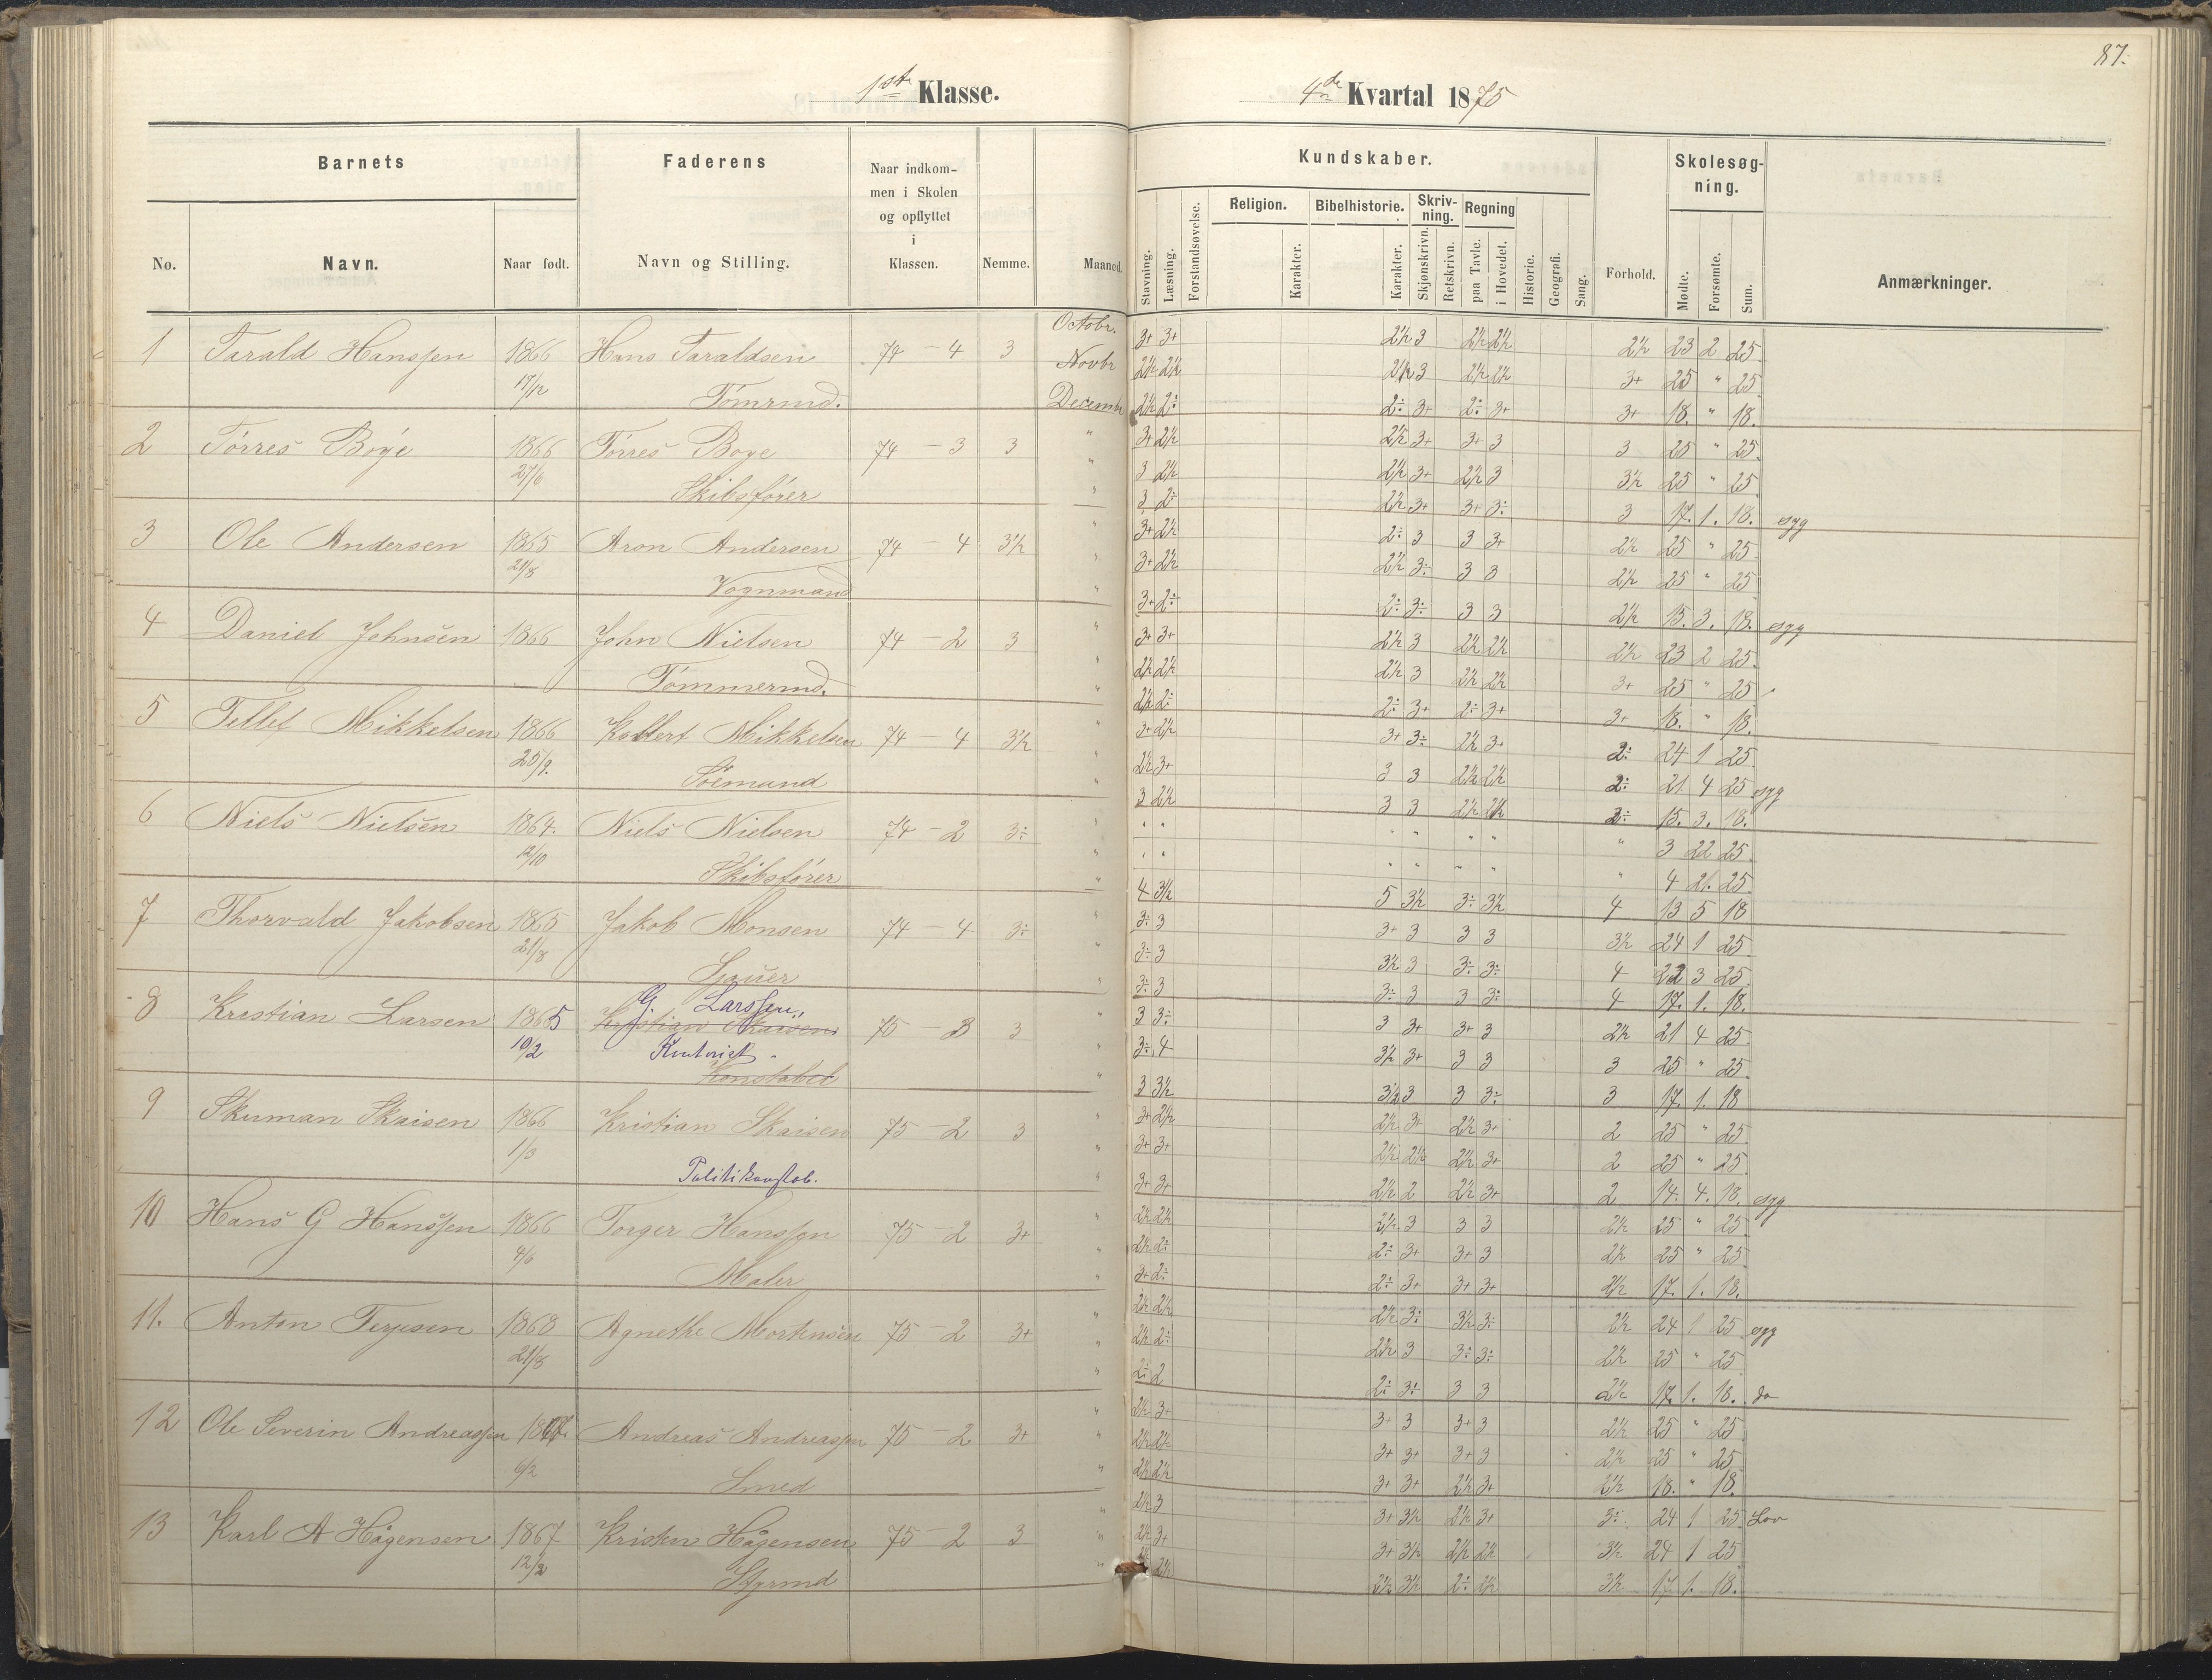 87.
1ste Klasse.
4de Kvartal 1875
Barnets
Faderens
Naar indkommen i Skolen og opflyttet i Klassen.
Kundskaber.
Skolesøgning.
Religion. Bibelhistorie. Skrivning. Regning
No. Navn. Naar født. Navn og Stilling. Nemme. Maaned.
Stavning. Læsning. Forstandsøvelse. Karakter. Karakter. Skjønskrivn. Retskrivn. paa Tavle. i Hovedet. Historie. Geografi. Sang. Forhold. Mødte. Forsømte. Sum. Anmærkninger.
1 Tarald Hanssen 1866 Hans Taraldsen 74 - 4 3 Octobr. 3+ 3+ 2½ 3 2½ 2½ 2½ 23 2 25
17/12 Tømrmd. Novbr 2½ 2½ 2½ 3 2½ 2½ 3+ 25 " 25
Decembr 2½ 2÷ 2÷ 3+ 2÷ 3+ 3+ 18. " 18.
2 Tørres Boye 1866 Tørres Boye 74 - 3 3 " 3+ 2½ 2½ 3+ 3+ 3 3 25 " 25.
27/6 Skibsfører " 3 2½ 2½ 3+ 2½ 3 3½ 25 " 25
" 3 2÷ 2½ 3+ 3+ 3÷ 3 17. 1. 18. syg
3 Ole Andersen 1865 Aron Andersen 74 - 4 3½ " 3+ 2½ 2÷ 3 3 3+ 2½ 25 " 25
21/8 Vognmand " 3+ 2½ 2½ 3÷ 3 3 2½ 25 " 25
" 3+ 2÷ 2÷ 3÷ 3 3 2½ 15. 3. 18. syg
4 Daniel Johnsen 1866 John Nielsen 74 - 2 3 " 3+ 3+ 2½ 3 2½ 2½ 2½ 23 2 25.
Tømmermd. " 2½ 2½ 2½ 3 2½ 2½ 3+ 25 " 25
" 2½ 2÷ 2÷ 3+ 2÷ 3+ 3+ 18. " 18.
5 Tellef Mikkelsen 1866 Kallert Mikkelsen 74 - 4 3½ " 3+ 2½ 3+ 3÷ 2½ 3+ 2÷ 24 1 25.
25/9. Sömand " 2½ 3+ 3 3 2½ 2½ 2÷ 21 4 25 syg
" 3 2½ 3 3 2½ 2½ 2÷ 15. 3. 18.
6 Niels Nielsen 1864. Niels Nielsen 74 - 2 3÷ " " " " " " " " 3 22 25.
12/10 Skibsfører " " " " " " " " 4 21. 25.
" 4 3½ 5 3½ 3÷ 3½ 4 13 5 18
7 Thorvald Jakobsen 1865 Jakob Monsen 74 - 4 3÷ " 3÷ 3 3+ 3 3 3 3½ 24 1 25.
21/8 " 3÷ 3 3½ 3 3÷ 3÷ 4 22 3 25.
" 3÷ 3 3÷ 3 3 3÷ 4 17. 1. 18.
8 Kristian Larsen 1865 G. Larssen 75 - 3 3 " 3 3÷ 3 3+ 3+ 3 2½ 21 4 25
10/2 Kontorist Konstabel " 3÷ 4 3½ 3+ 3 3 3 25 " 25
" 3 3½ 3½ 3 3 3÷ 3 17. 1. 18
9 Skuman Skaisen 1866 Kristian Skaisen 75 - 2 3 " 3+ 2½ 2½ 3+ 2½ 3+ 2 25 " 25.
1/3 Politikonstab. " 3+ 3+ 2½ 2½ 2½ 3+ 2 25 " 25
" 3+ 3+ 2½ 2 2½ 3+ 2 14. 4. 18. syg
10 Hans G Hanssen 1866 Torger Hanssen 75 - 2 3+ " 2½ 2½ 2½ 3 3 3 2½ 25 " 25
4/6 Maler " 2½ 2÷ 2÷ 3+ 3+ 3 2½ 25 " 25
" 3+ 2÷ 2÷ 3+ 3+ 3+ 2½ 17. 1. 18.
11. Anton Terjesen 1868 Agnethe Mortensen 75 - 2 3+ " 2½ 2½ 2½ 3÷ 3½ 3÷ 2½ 24 1 25 syg
21/8 " 2½ 2÷ 2½ 3 3÷ 3÷ 2½ 25 " 25
" 2÷ 2 2÷ 3÷ 3 3 2½ 17. 1. 18. do
12 Ole Severin Andreassen Andreas Andreassen 75 - 2 3+ " 2½ 3+ 3+ 3 3+ 3 2½ 25 " 25
6/2 Smed " 2½ 2½ 3+ 3+ 3+ 3 2½ 25 " 25
" 2½ 2½ 3+ 3+ 2½ 3+ 2½ 18. " 18.
13 Karl A Hågensen 1867 Kristen Hågensen 75 - 2 3 " 2½ 3 3+ 3½ 2½ 3+ 3÷ 24 1 25 Lov
Styrmd " 2½ 3+ 3+ 3½ 2½ 2½ 3½ 24 1 25
" 2½ 2½ 3½ 2÷ 2½ 3½ 17. 1. 18.